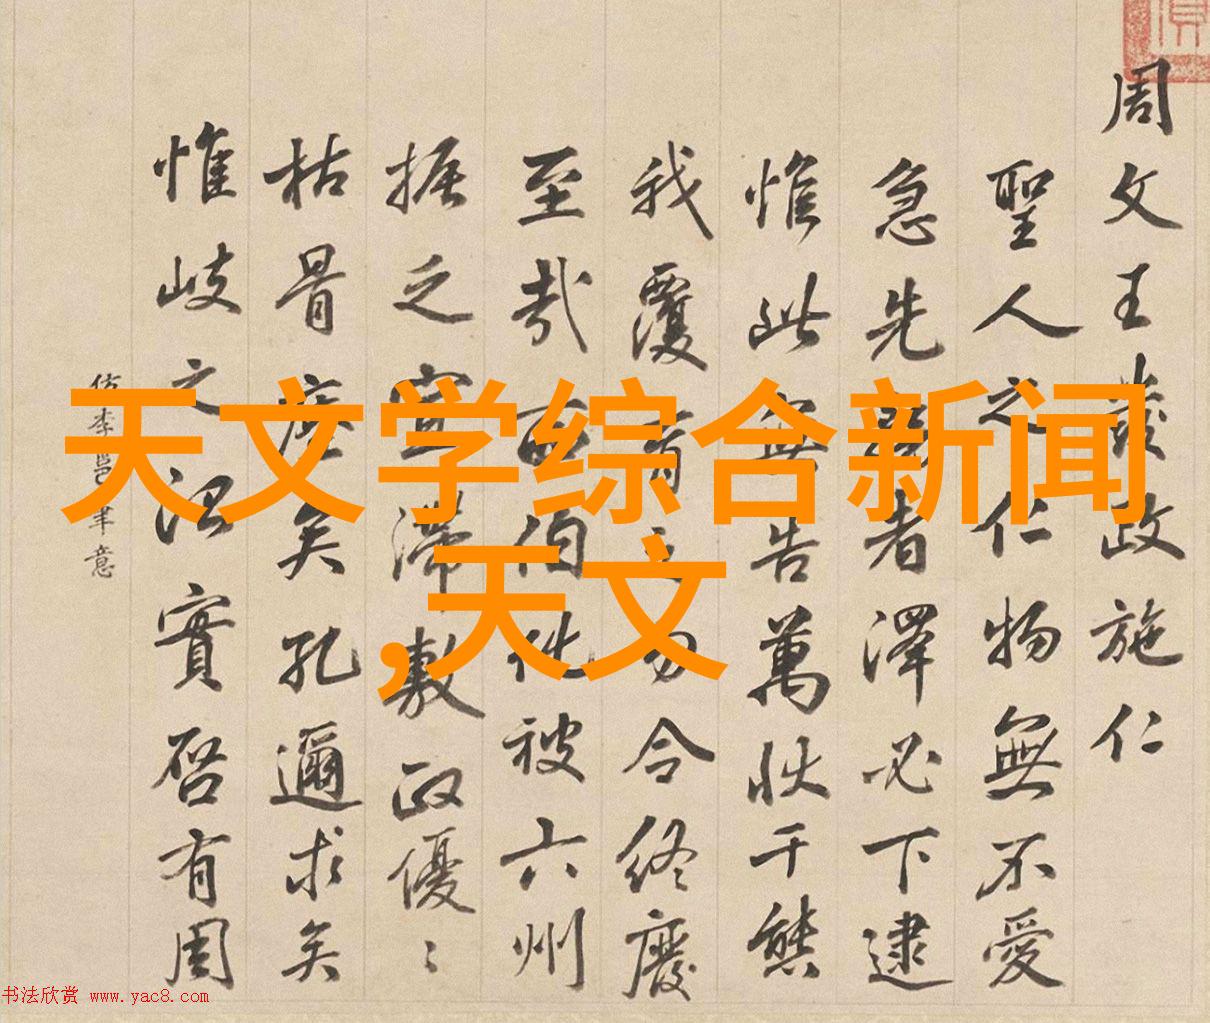 天文学综合新闻
,天文
周文王發政施仁
聖人之仁物無不愛
急先者澤必下逮
惟此無告萬狀千態
我覆育之勿令終廢
至哉西伯化被六州
振之宣滯敷政優〻
枯骨瘞矣孔邇求矣
惟岐之沼實啓有周
仿李邕筆意
书法欣赏 www.yac8.com